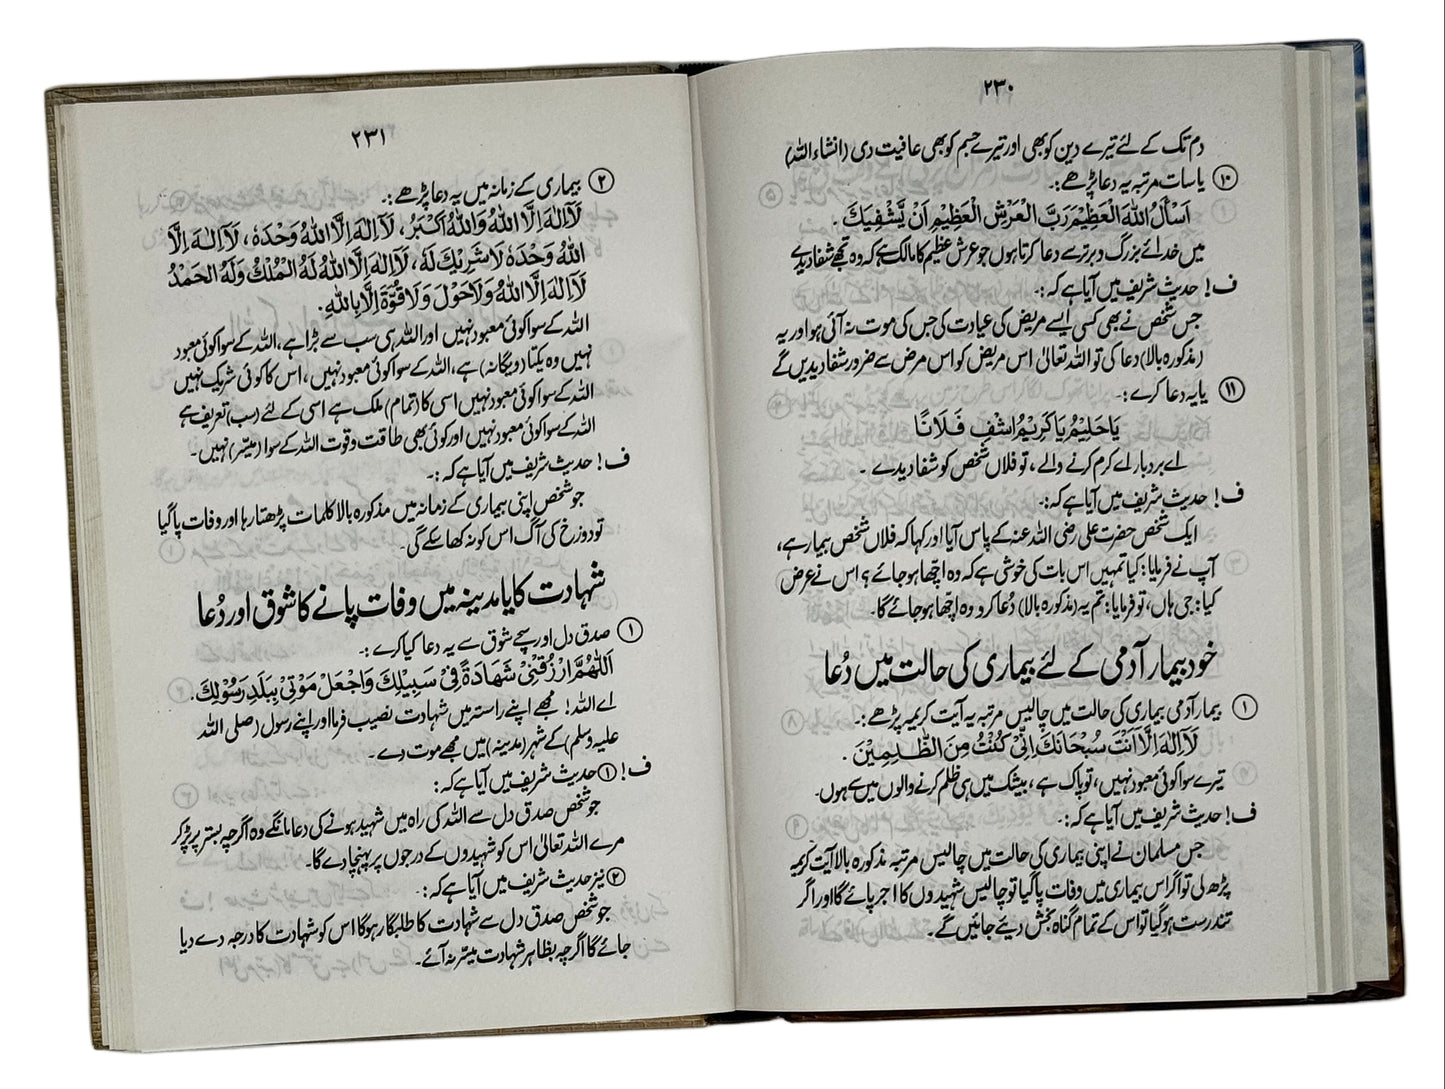 ۲۳۰
دم تک کے لئے تیرے دین کو بھی اور تیرے جسم کو بھی عافیت دی (انشاء اللہ)
۱۰ یا سات مرتبہ یہ دعا پڑھے:۔
اَسْأَلُ اللّٰهَ الْعَظِيْمَ رَبَّ الْعَرْشِ الْعَظِيْمِ اَنْ يَّشْفِيَكَ .
میں خدائے بزرگ و برتر سے دعا کرتا ہوں جو عرش عظیم کا مالک ہے کہ وہ تجھے شفا دیدے
ف! حدیث شریف میں آیا ہے کہ :۔
جس شخص نے بھی کسی ایسے مریض کی عیادت کی جس کی موت نہ آئی ہو اور یہ
(مذکورہ بالا) دعا کی تو اللہ تعالیٰ اس مریض کو اس مرض سے ضرور شفا دیدیں گے
۱۱ یا یہ دعا کرے :۔
يَا حَلِيْمُ يَا كَرِيْمُ اشْفِ فَلَانًا
اے بردبار اے کرم کرنے والے ، تو فلاں شخص کو شفا دیدے ۔
ف! حدیث شریف میں آیا ہے کہ:۔
ایک شخص حضرت علی رضی اللہ عنہ کے پاس آیا اور کہا کہ فلاں شخص بیمار ہے،
آپ نے فرمایا: کیا تمہیں اس بات کی خوشی ہے کہ وہ اچھا ہو جائے؟ اس نے عرض
کیا: جی ہاں، تو فرمایا: تم یہ (مذکورہ بالا) دُعا کرو وہ اچھا ہو جائے گا۔
خود بیمار آدمی کے لئے بیماری کی حالت میں دُعا
۱ بیمار آدمی بیماری کی حالت میں چالیس مرتبہ یہ آیت کریمہ پڑھے :۔
لَآ اِلٰهَ اِلَّا اَنْتَ سُبْحَانَكَ اِنِّىْ كُنْتُ مِنَ الظّٰلِمِيْنَ .
تیرے سوا کوئی معبود نہیں، تو پاک ہے ، بیشک میں ہی ظلم کرنے والوں میں سے ہوں۔
ف! حدیث شریف میں آیا ہے کہ :۔
جس مسلمان نے اپنی بیماری کی حالت میں چالیس مرتبہ مذکورہ بالا آیت کریمہ
پڑھ لی تو اگر اس بیماری میں وفات پا گیا تو چالیس شہیدوں کا اجر پائے گا اور اگر
تندرست ہو گیا تو اس کے تمام گناہ بخش دیئے جائیں گے ۔
۲۳۱
۲ بیماری کے زمانہ میں یہ دعا پڑھے :۔
لَآ اِلٰهَ اِلَّا اللّٰهُ وَاللّٰهُ اَكْبَرُ، لَآ اِلٰهَ اِلَّا اللّٰهُ وَحْدَهٗ، لَآ اِلٰهَ اِلَّا
اللّٰهُ وَحْدَهٗ لَا شَرِيْكَ لَهٗ، لَآ اِلٰهَ اِلَّا اللّٰهُ لَهُ الْمُلْكُ وَلَهُ الْحَمْدُ
لَآ اِلٰهَ اِلَّا اللّٰهُ وَلَا حَوْلَ وَلَا قُوَّةَ اِلَّا بِاللّٰهِ.
اللہ کے سوا کوئی معبود نہیں اور اللہ ہی سب سے بڑا ہے، اللہ کے سوا کوئی معبود
نہیں وہ یکتا (و یگانہ) ہے، اللہ کے سوا کوئی معبود نہیں ، اس کا کوئی شریک نہیں
اللہ کے سوا کوئی معبود نہیں اسی کا (تمام) ملک ہے اسی کے لئے (سب) تعریف ہے
اللہ کے سوا کوئی معبود نہیں اور کوئی بھی طاقت و قوت اللہ کے سوا (میسّر) نہیں۔
ف! حدیث شریف میں آیا ہے کہ :۔
جو شخص اپنی بیماری کے زمانہ میں مذکورہ بالا کلمات پڑھتا رہا اور وفات پا گیا
تو دوزخ کی آگ اس کو نہ کھا سکے گی۔
شہادت کا یا مدینہ میں وفات پانے کا شوق اور دُعا
۱ صدق دل اور سچے شوق سے یہ دعا کیا کرے :۔
اَللّٰهُمَّ ارْزُقْنِىْ شَهَادَةً فِىْ سَبِيْلِكَ وَاجْعَلْ مَوْتِىْ بِبَلَدِ رَسُوْلِكَ.
اے اللہ! مجھے اپنے راستہ میں شہادت نصیب فرما اور اپنے رسول (صلی اللہ
علیہ وسلم) کے شہر (مدینہ) میں مجھے موت دے۔
ف! ۱ حدیث شریف میں آیا ہے کہ:
جو شخص صدق دل سے اللہ کی راہ میں شہید ہونے کی دعا مانگے وہ اگرچہ بستر پر پڑ کر
مرے اللہ تعالیٰ اس کو شہیدوں کے درجوں پر پہنچا دے گا۔
۲ نیز حدیث شریف میں آیا ہے کہ :۔
جو شخص صدق دل سے شہادت کا طلبگار ہوگا اس کو شہادت کا درجہ دے دیا
جائے گا اگرچہ بظاہر شہادت میسّر نہ آئے۔